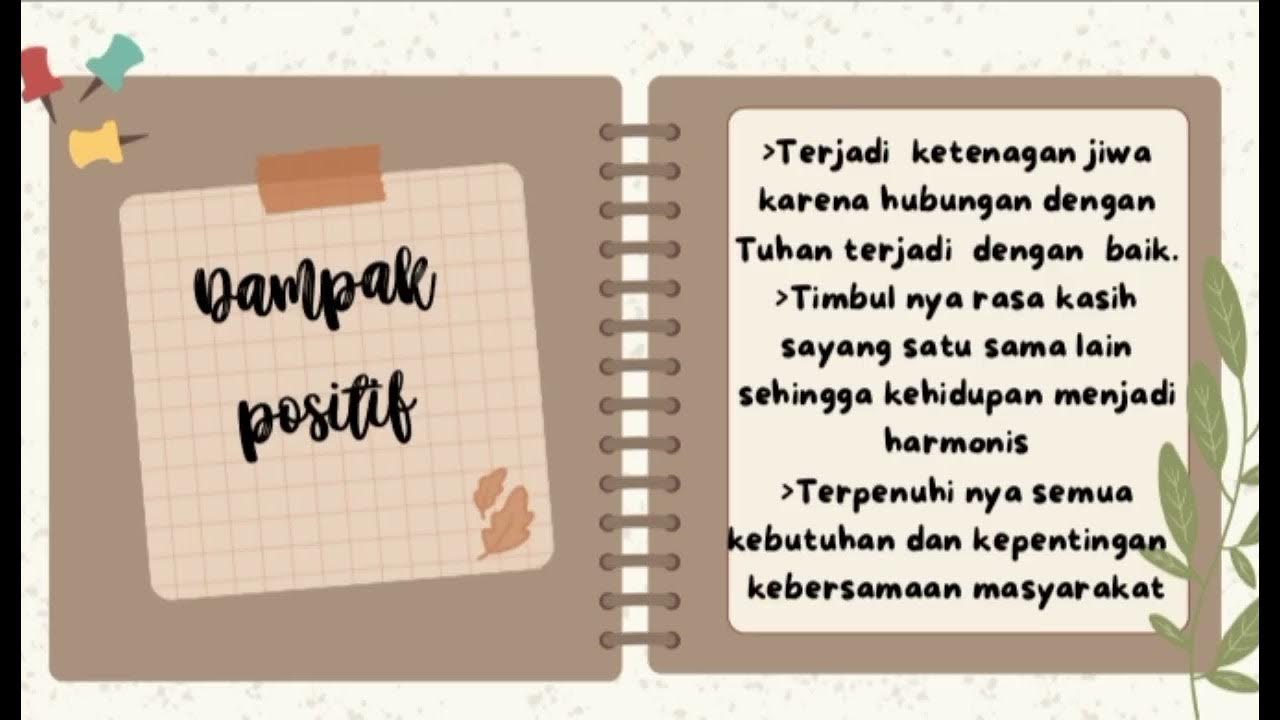 Dampak
positif
>Terjadi ketenagan jiwa
karena hubungan dengan
Tuhan terjadi dengan baik.
>Timbul nya rasa kasih
sayang satu sama lain
sehingga kehidupan menjadi
harmonis
>Terpenuhi nya semua
kebutuhan dan kepentingan
kebersamaan masyarakat